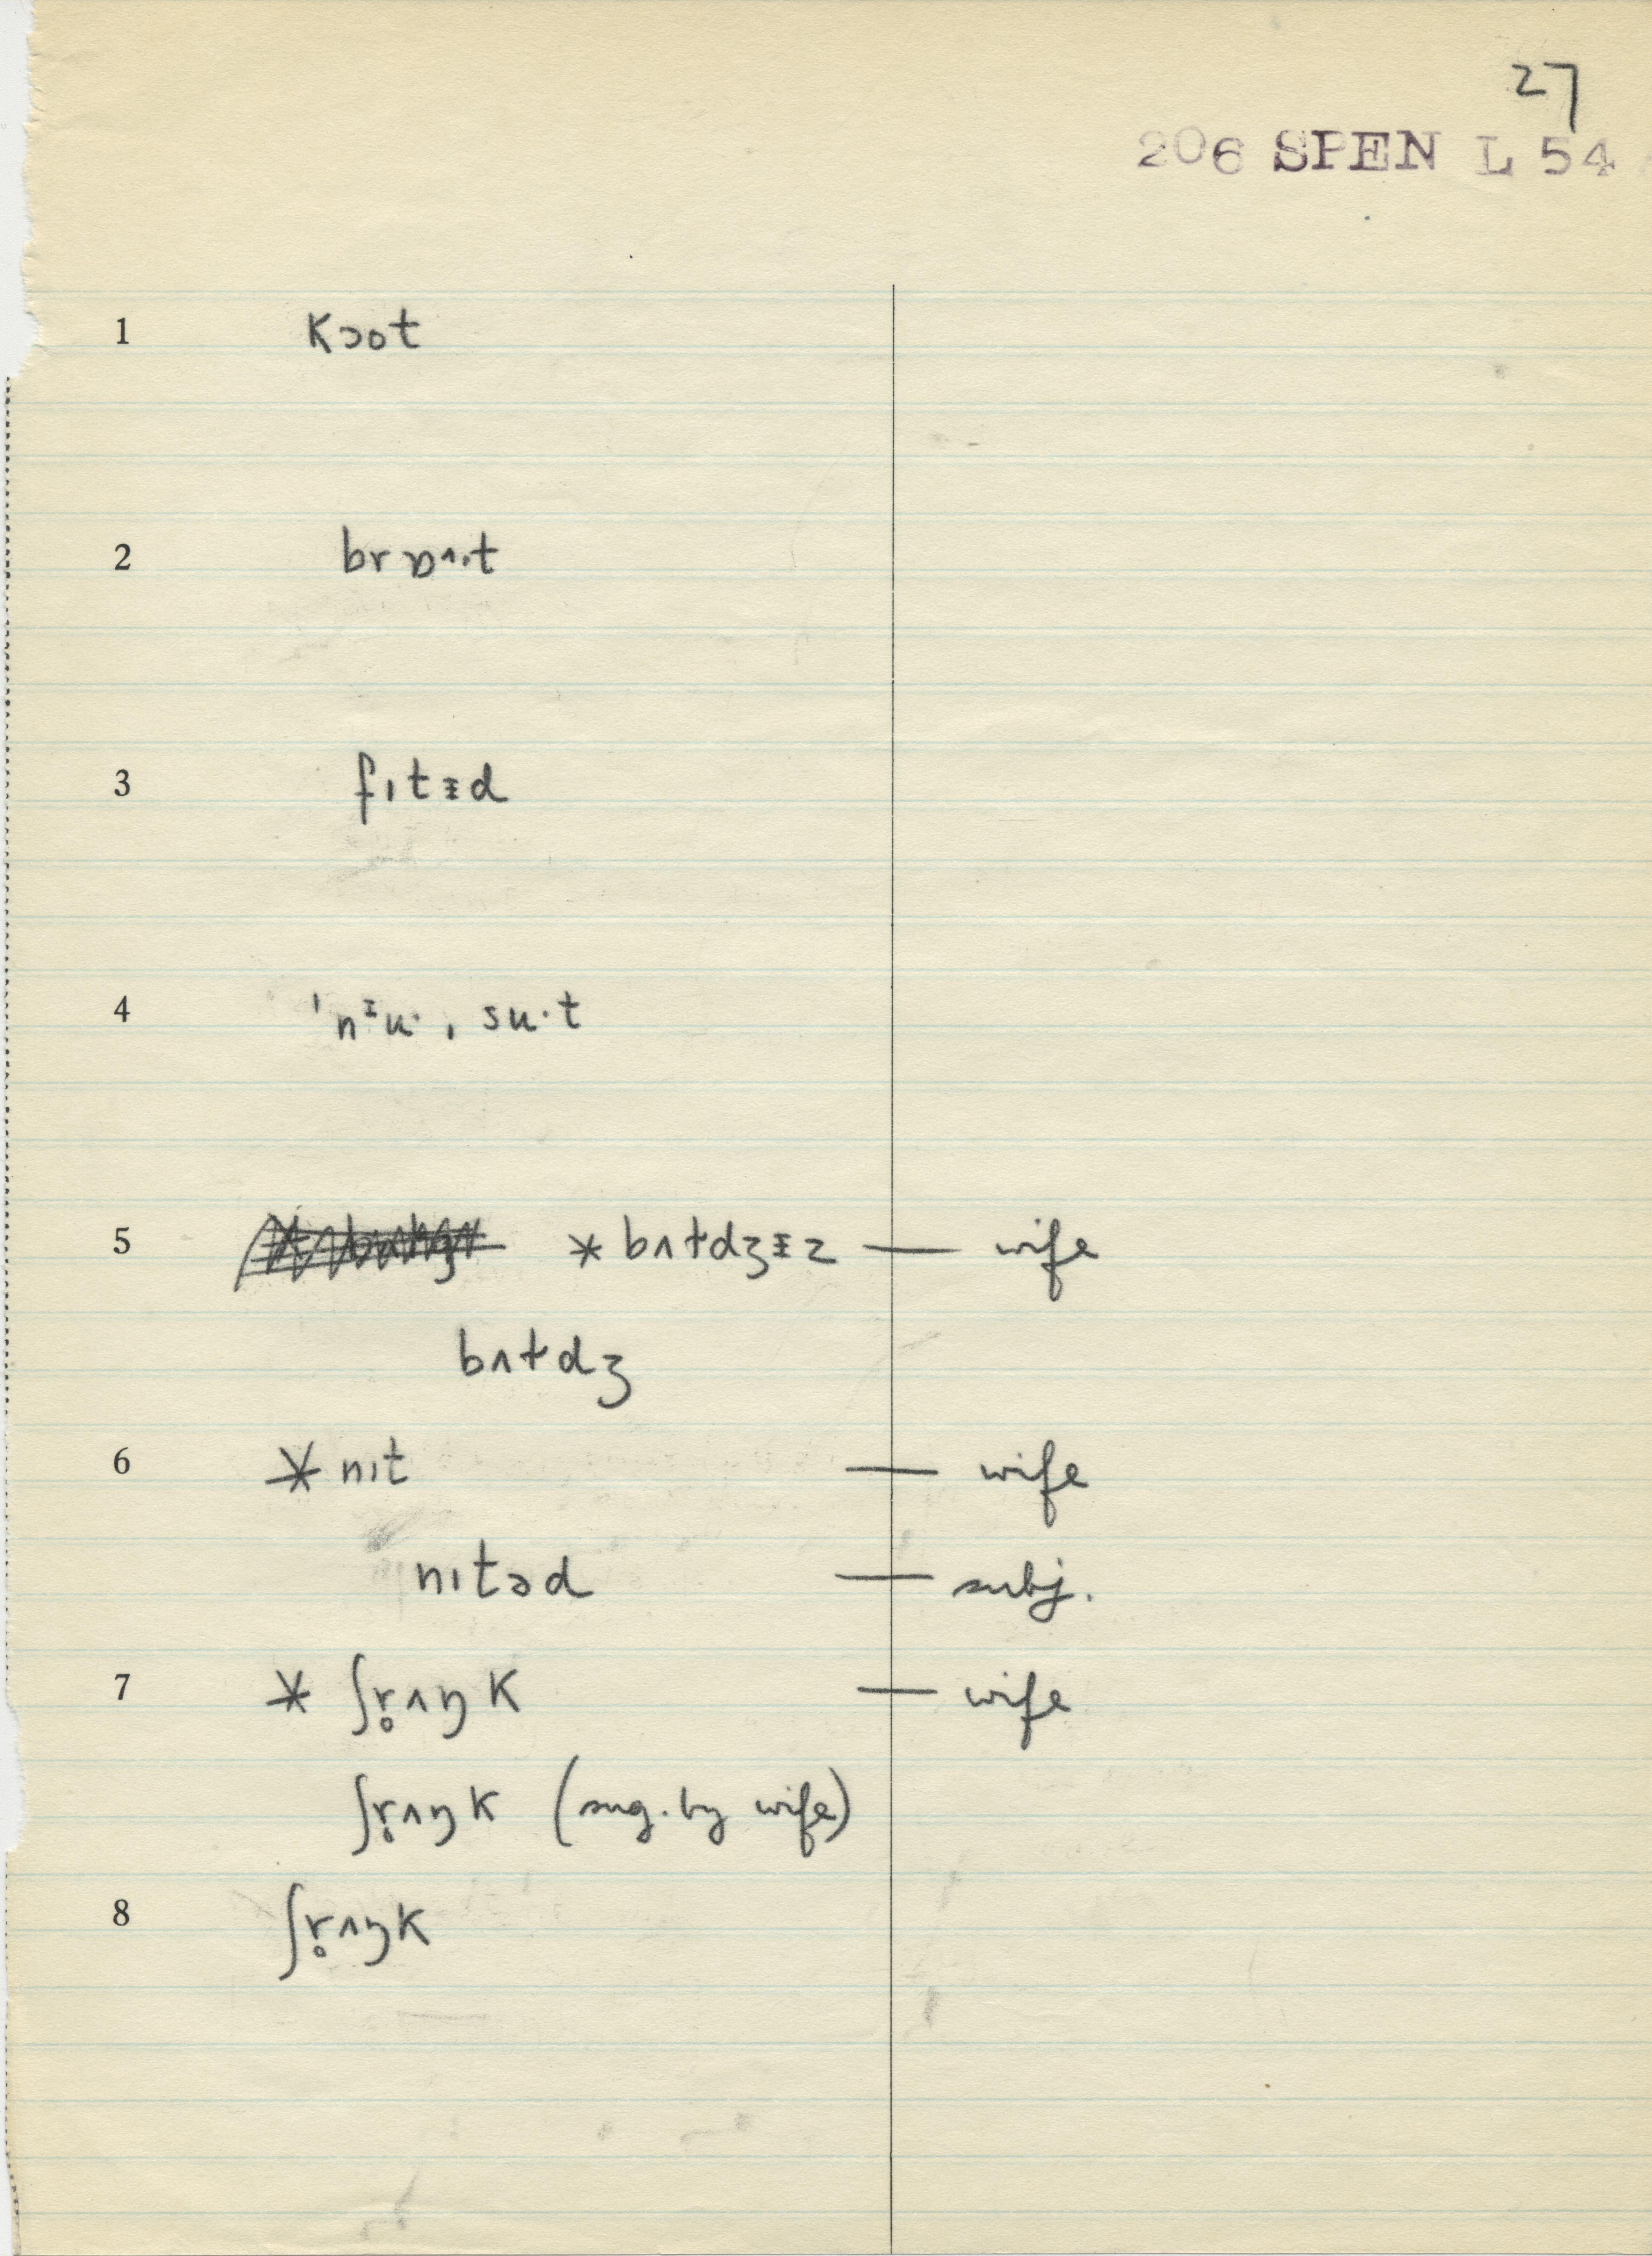 27
206 SPEN L 54
1 kɔot
2 brɒʌ·t
3 fɪtᵻd
4 ˈnᶦu· ˌsu·t
5 * bʌtdʒᵻz — wife
bʌtdʒ
6 * nɪt — wife
nɪtəd — subj.
7 * ʃr̥ʌŋk — wife
ʃr̥ʌŋk (sug. by wife)
8 ʃr̥ʌŋk